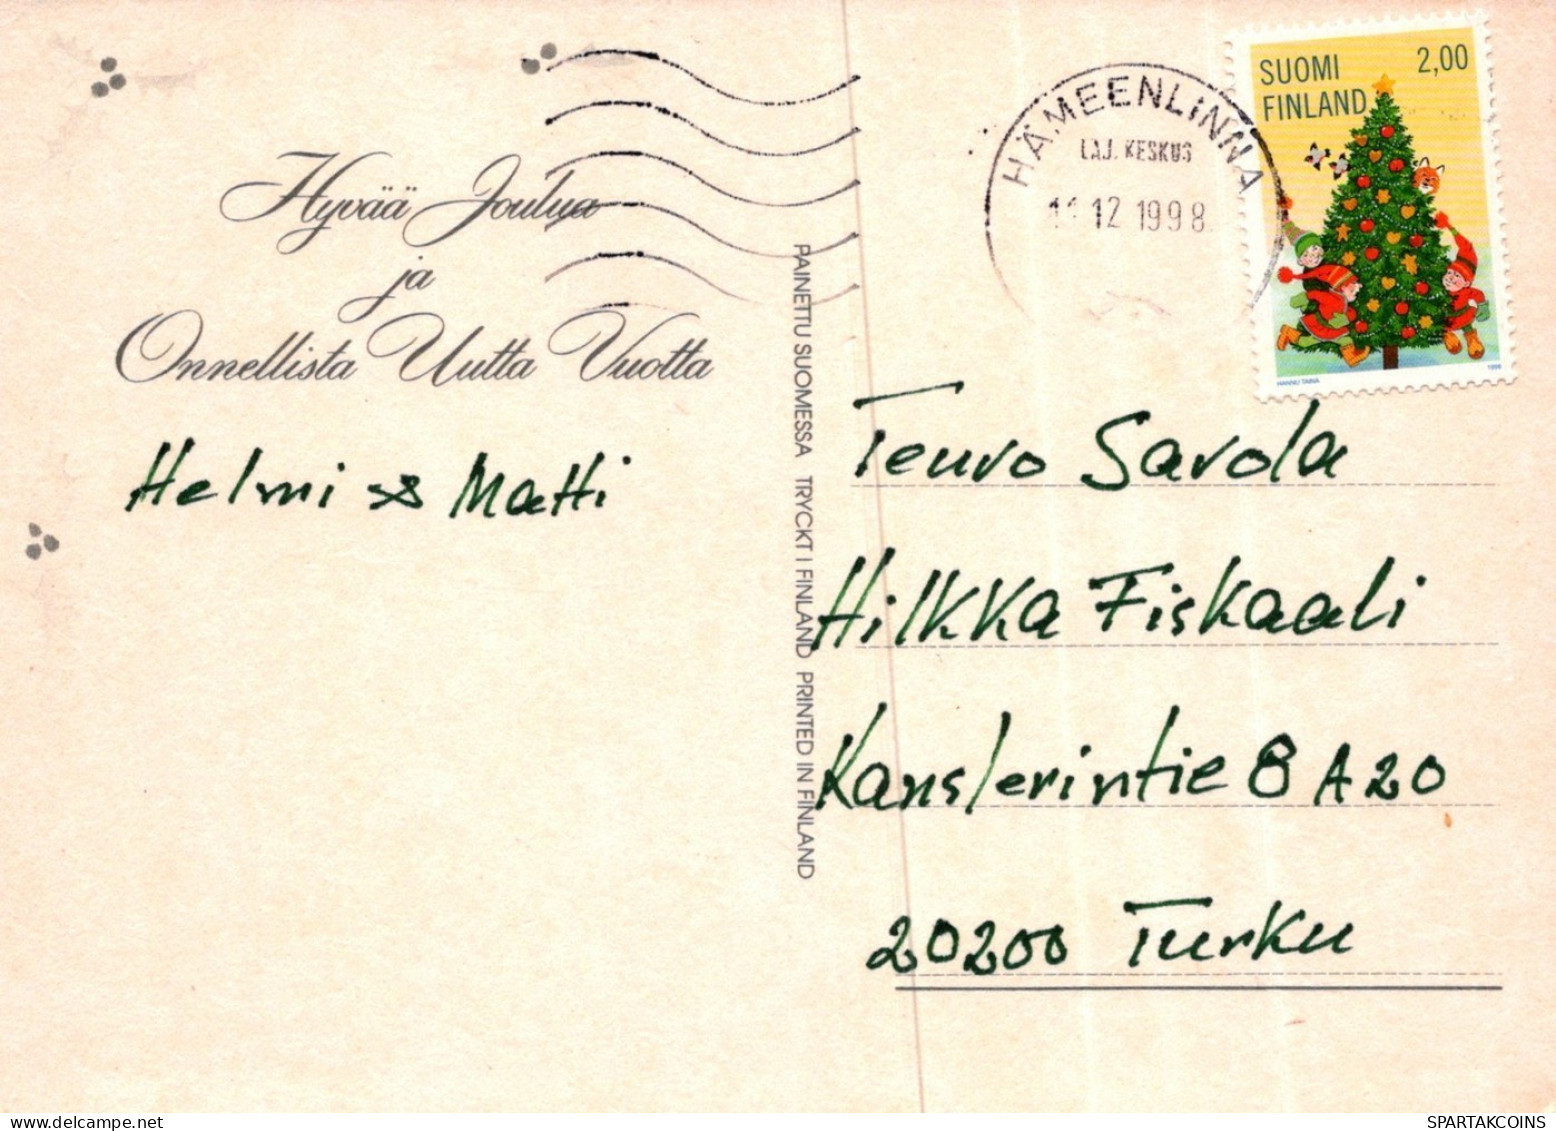 Hyvää Joulua
ja
Onnellista Uutta Vuotta
Helmi & Matti
PAINETTU SUOMESSA TRYCKT I FINLAND PRINTED IN FINLAND
HÄMEENLINNA
LAJ. KESKUS
11 12 1998
SUOMI 2,00
FINLAND
HANNU TAINA 1998
Teuvo Savola
Hilkka Fiskaali
Kanslerintie 8 A 20
20200 Turku
delcampe.net
SPARTAKCOINS